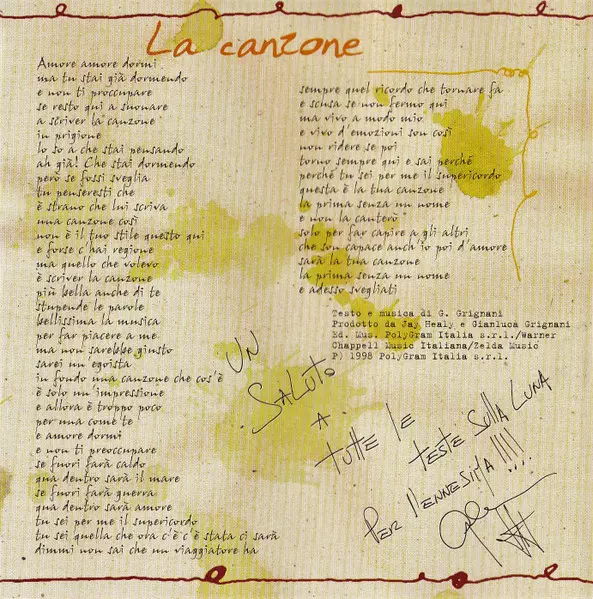 La canzone
Amore amore dormi
ma tu stai già dormendo
e non ti preoccupare
se resto qui a suonare
a scriver la canzone
in prigione
lo so a che stai pensando
ah già! Che stai dormendo
però se fossi sveglia
tu penseresti che
è strano che lui scriva
una canzone così
non è il tuo stile questo qui
e forse c'hai regione
ma quello che volevo
è scriver la canzone
più bella anche di te
stupende le parole
bellissima la musica
per far piacere a me
ma non sarebbe giusto
sarei un egoista
in fondo una canzone che cos'è
è solo un'impressione
e allora è troppo poco
per una come te
e amore dormi
e non ti preoccupare
se fuori farà caldo
qua dentro sarà il mare
se fuori farà guerra
qua dentro sarà amore
tu sei per me il supericordo
tu sei quella che ora c'è c'è stata ci sarà
dimmi non sai che un viaggiatore ha
sempre quel ricordo che tornare fa
e scusa se non fermo qui
ma vivo a modo mio
e vivo d'emozioni son così
non ridere se poi
torno sempre qui e sai perché
perché tu sei per me il supericordo
questa è la tua canzone
la prima senza un nome
e non la canterò
solo per far capire a gli altri
che son capace anch'io poi d'amore
sarà la tua canzone
la prima senza un nome
e adesso svegliati
Testo e musica di G. Grignani
Prodotto da Jay Healy e Gianluca Grignani
Ed. Mus. PolyGram Italia s.r.l./Warner
Chappell Music Italiana/Zelda Music
P) 1998 PolyGram Italia s.r.l.
UN
SALUTO
A
TUTTE LE
TESTE SULLA LUNA
PER l'ENNESIMA !!!!